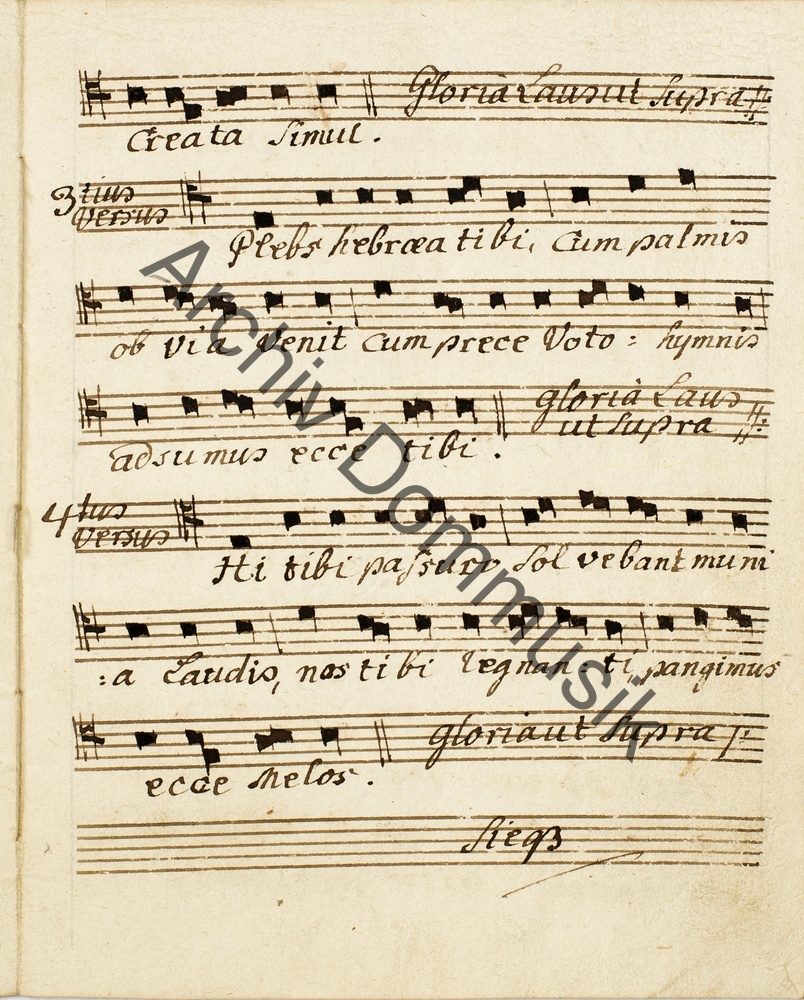 Creata simul. Gloria Laus ut supra
3tius versus Plebs hebræa tibi, Cum palmis
ob via venit cum prece Voto: hymnis
adsumus ecce tibi. gloria Laus ut supra
4tus versus Hi tibi passuro, Sol vebant muni
:a Laudis, nos tibi regnan-ti, pangimus
ecce Melos. gloria ut supra
Archiv Dommusik